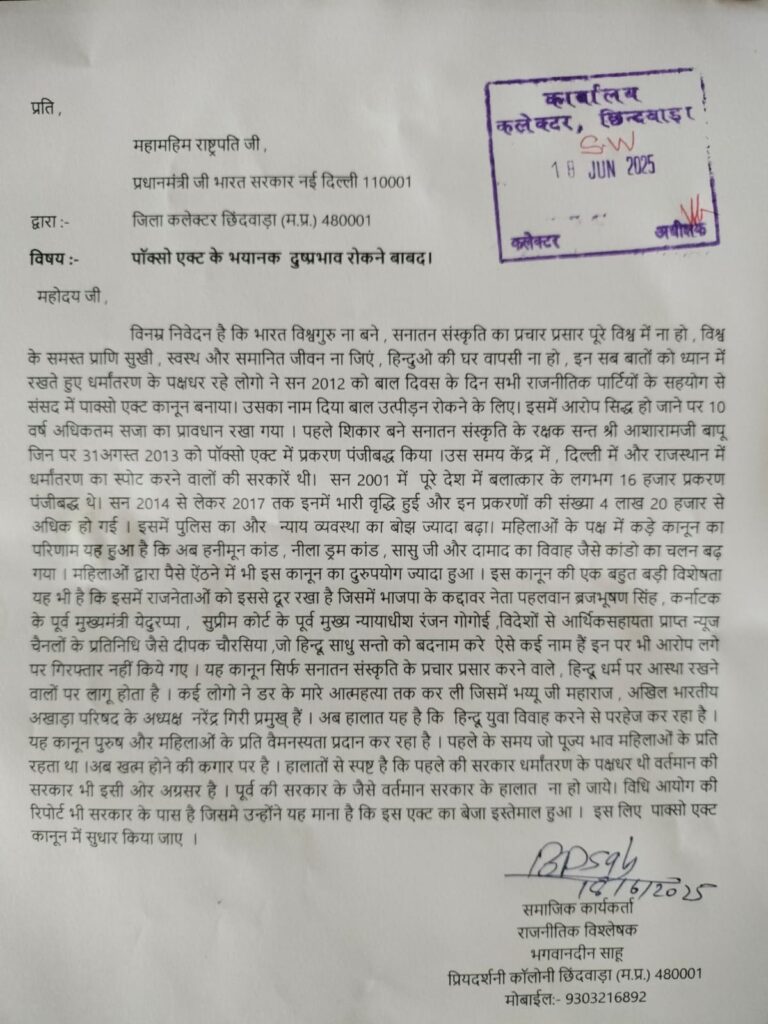 प्रति ,
कार्यालय
कलेक्टर, छिन्दवाड़ा
SW
18 JUN 2025
कलेक्टर अधीक्षक
महामहिम राष्ट्रपति जी ,
प्रधानमंत्री जी भारत सरकार नई दिल्ली 110001
द्वारा :- जिला कलेक्टर छिंदवाड़ा (म.प्र.) 480001
विषय :- पॉक्सो एक्ट के भयानक दुष्प्रभाव रोकने बाबद।
महोदय जी ,
विनम्र निवेदन है कि भारत विश्वगुरु ना बने , सनातन संस्कृति का प्रचार प्रसार पूरे विश्व में ना हो , विश्व
के समस्त प्राणि सुखी , स्वस्थ और समानित जीवन ना जिएं , हिन्दुओ की घर वापसी ना हो , इन सब बातों को ध्यान में
रखते हुए धर्मांतरण के पक्षधर रहे लोगो ने सन 2012 को बाल दिवस के दिन सभी राजनीतिक पार्टियों के सहयोग से
संसद में पाक्सो एक्ट कानून बनाया। उसका नाम दिया बाल उत्पीड़न रोकने के लिए। इसमें आरोप सिद्ध हो जाने पर 10
वर्ष अधिकतम सजा का प्रावधान रखा गया । पहले शिकार बने सनातन संस्कृति के रक्षक सन्त श्री आशारामजी बापू
जिन पर 31अगस्त 2013 को पॉक्सो एक्ट में प्रकरण पंजीबद्ध किया ।उस समय केंद्र में , दिल्ली में और राजस्थान में
धर्मांतरण का स्पोट करने वालों की सरकारें थी। सन 2001 में पूरे देश में बलात्कार के लगभग 16 हजार प्रकरण
पंजीबद्ध थे। सन 2014 से लेकर 2017 तक इनमें भारी वृद्धि हुई और इन प्रकरणों की संख्या 4 लाख 20 हजार से
अधिक हो गई । इसमें पुलिस का और न्याय व्यवस्था का बोझ ज्यादा बढ़ा। महिलाओं के पक्ष में कड़े कानून का
परिणाम यह हुआ है कि अब हनीमून कांड , नीला ड्रम कांड , सासु जी और दामाद का विवाह जैसे कांडो का चलन बढ़
गया । महिलाओं द्वारा पैसे ऐंठने में भी इस कानून का दुरुपयोग ज्यादा हुआ । इस कानून की एक बहुत बड़ी विशेषता
यह भी है कि इसमें राजनेताओं को इससे दूर रखा है जिसमें भाजपा के कद्दावर नेता पहलवान ब्रजभूषण सिंह , कर्नाटक
के पूर्व मुख्यमंत्री येदुरप्पा , सुप्रीम कोर्ट के पूर्व मुख्य न्यायाधीश रंजन गोगोई ,विदेशों से आर्थिकसहायता प्राप्त न्यूज
चैनलों के प्रतिनिधि जैसे दीपक चौरसिया ,जो हिन्दू साधु सन्तो को बदनाम करे ऐसे कई नाम हैं इन पर भी आरोप लगे
पर गिरफ्तार नहीं किये गए । यह कानून सिर्फ सनातन संस्कृति के प्रचार प्रसार करने वाले , हिन्दू धर्म पर आस्था रखने
वालों पर लागू होता है । कई लोगो ने डर के मारे आत्महत्या तक कर ली जिसमें भय्यू जी महाराज , अखिल भारतीय
अखाड़ा परिषद के अध्यक्ष नरेंद्र गिरी प्रमुख् हैं । अब हालात यह है कि हिन्दू युवा विवाह करने से परहेज कर रहा है ।
यह कानून पुरुष और महिलाओं के प्रति वैमनस्यता प्रदान कर रहा है । पहले के समय जो पूज्य भाव महिलाओं के प्रति
रहता था ।अब खत्म होने की कगार पर है । हालातों से स्पष्ट है कि पहले की सरकार धर्मांतरण के पक्षधर थी वर्तमान की
सरकार भी इसी ओर अग्रसर है । पूर्व की सरकार के जैसे वर्तमान सरकार के हालात ना हो जाये। विधि आयोग की
रिपोर्ट भी सरकार के पास है जिसमे उन्होंने यह माना है कि इस एक्ट का बेजा इस्तेमाल हुआ । इस लिए पाक्सो एक्ट
कानून में सुधार किया जाए ।
BDSah
18/6/2025
समाजिक कार्यकर्ता
राजनीतिक विश्लेषक
भगवानदीन साहू
प्रियदर्शनी कॉलोनी छिंदवाड़ा (म.प्र.) 480001
मोबाईल:- 9303216892